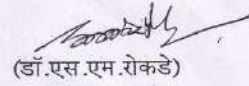 (डॉ.एस.एम.रोकडे)